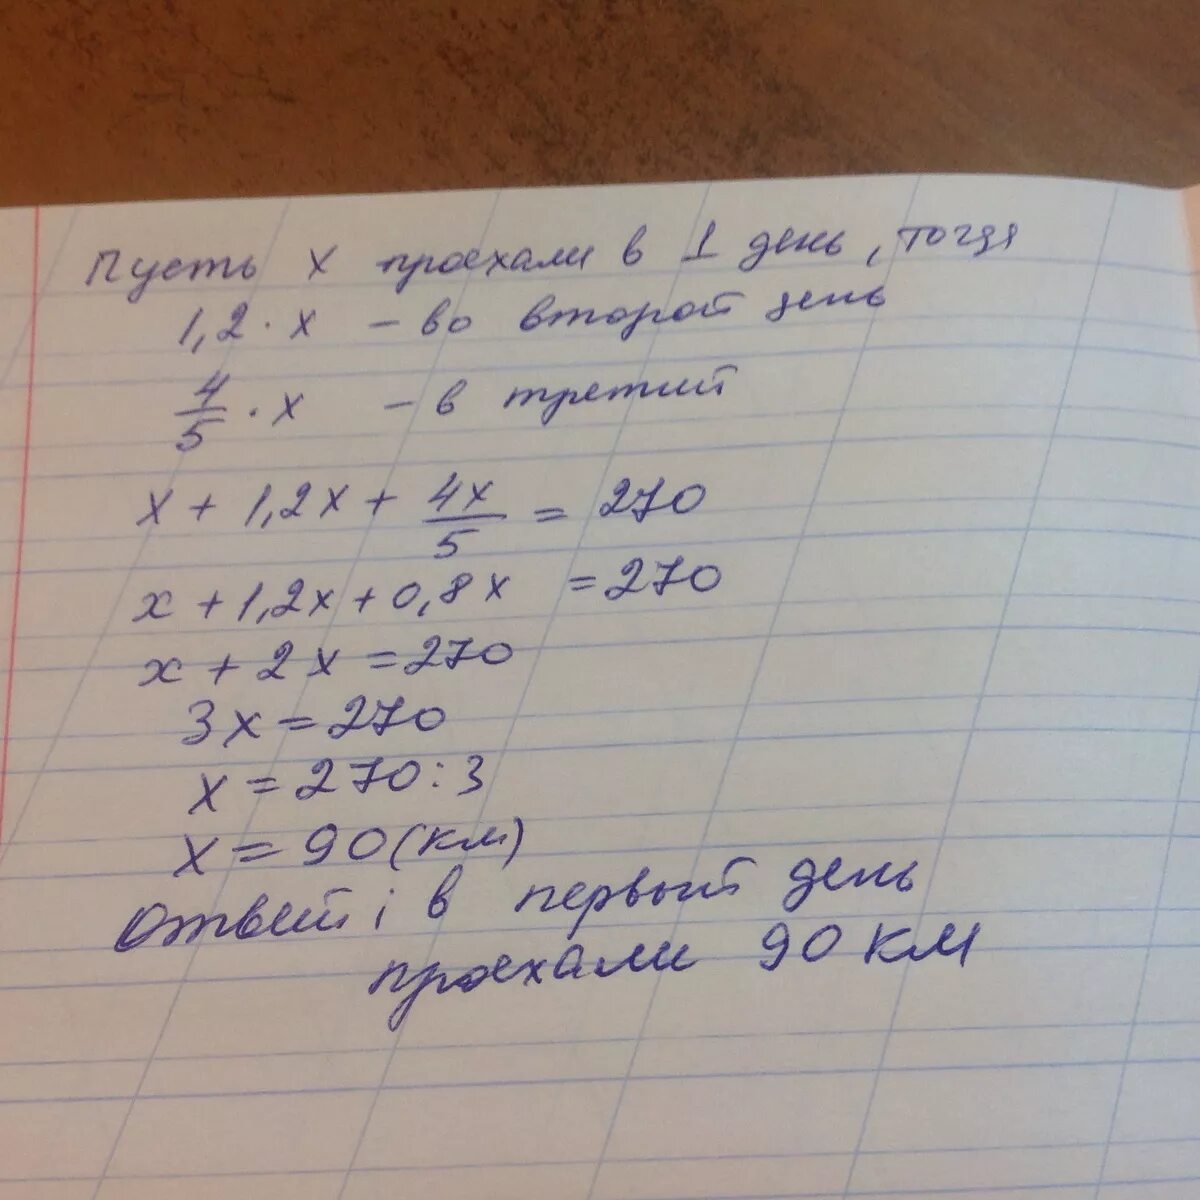 Пусть x проехали в 1 день, тогда
1,2 · x – во второй день
4/5 · x – в третий
x + 1,2x + 4x/5 = 270
x + 1,2x + 0,8x = 270
x + 2x = 270
3x = 270
x = 270 : 3
x = 90 (км)
Ответ: в первый день
проехали 90 км